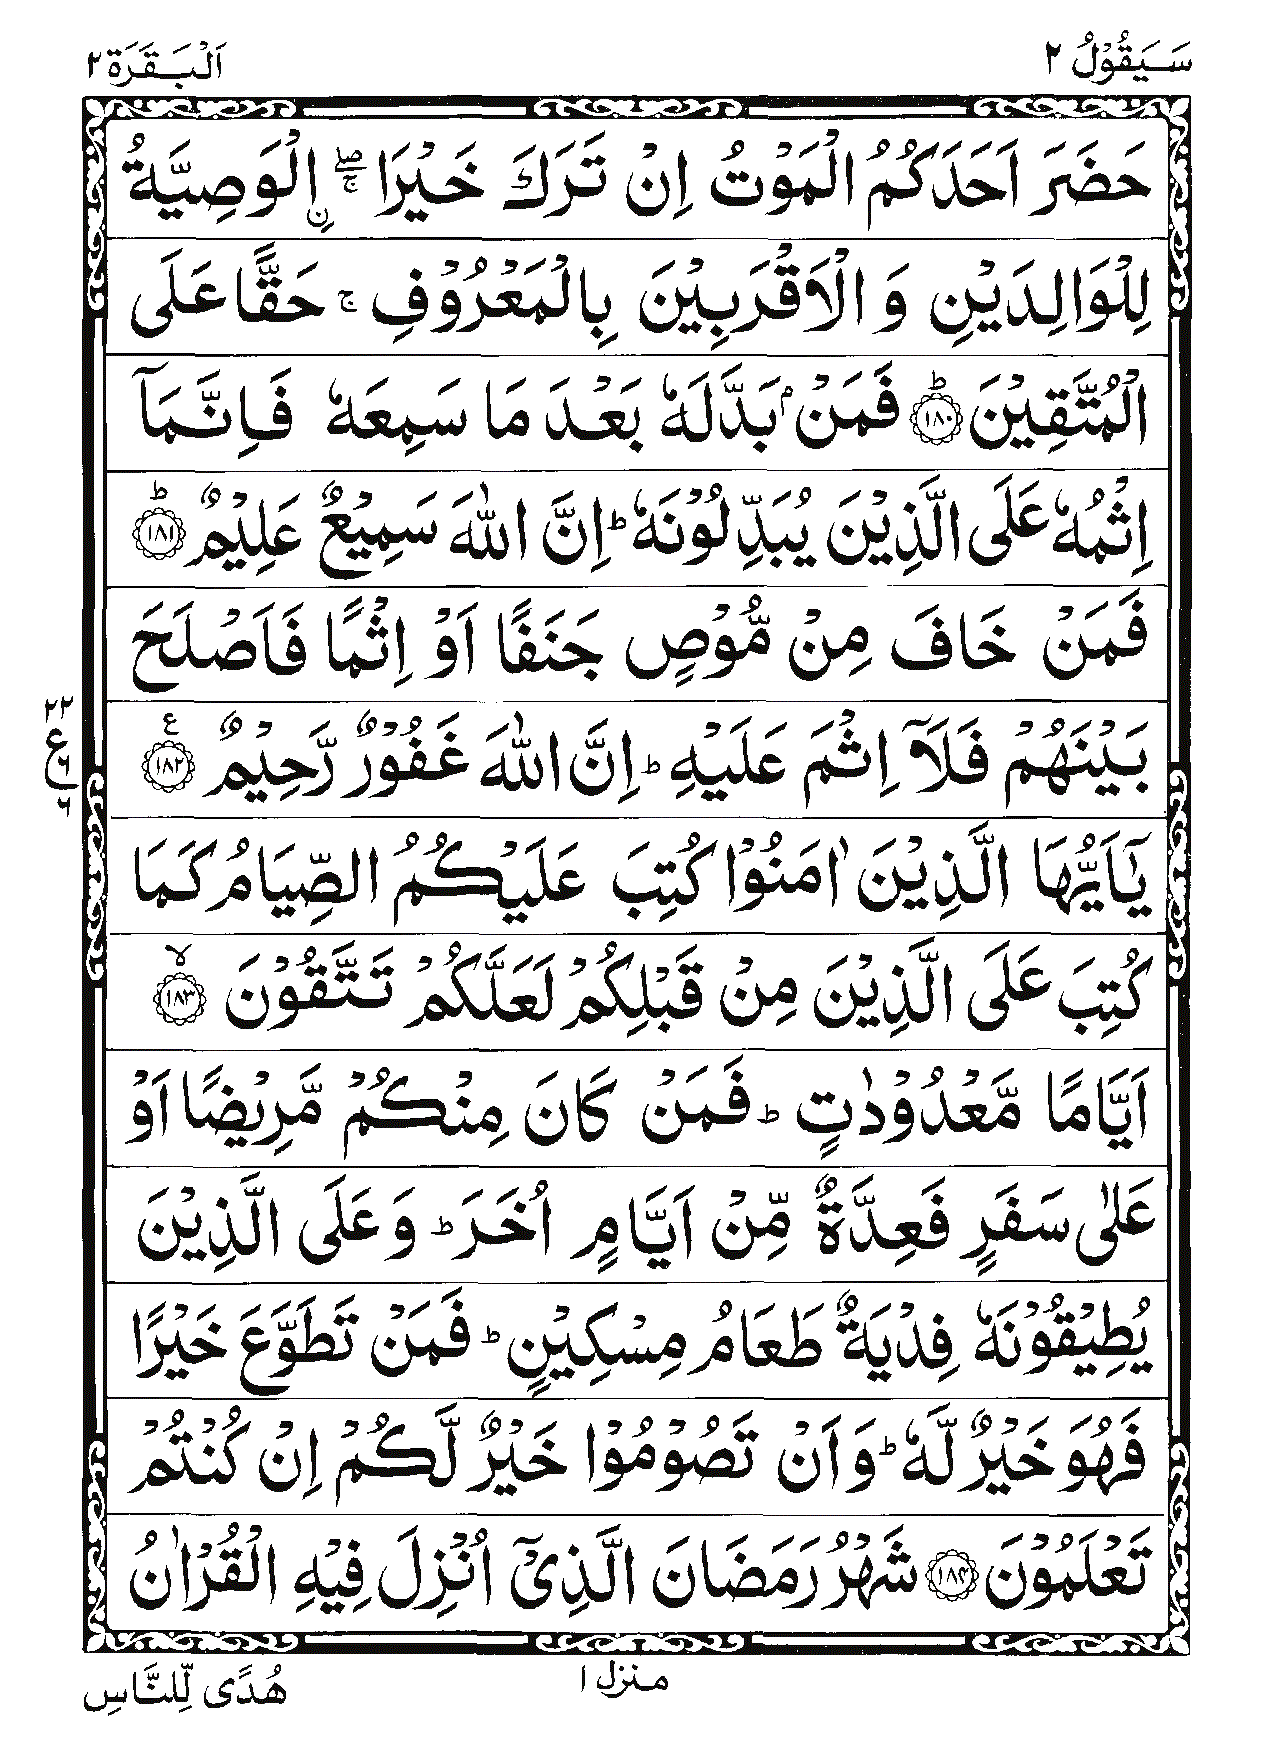 سَيَقُوْلُ ٢
اَلْبَقَرَة ٢
حَضَرَ اَحَدَكُمُ الْمَوْتُ اِنْ تَرَكَ خَيْرَا ۖۚ ن ِالْوَصِيَّةُ
لِلْوَالِدَيْنِ وَ الْاَقْرَبِيْنَ بِالْمَعْرُوْفِ ۚ حَقًّا عَلَى
الْمُتَّقِيْنَ ؕ ﴿١٨٠﴾ فَمَنْۢ بَدَّلَهٗ بَعْدَ مَا سَمِعَهٗ فَاِنَّمَاۤ
اِثْمُهٗ عَلَى الَّذِيْنَ يُبَدِّلُوْنَهٗ ؕ اِنَّ اللّٰهَ سَمِيْعٌ عَلِيْمٌ ؕ ﴿١٨١﴾
فَمَنْ خَافَ مِنْ مُّوْصٍ جَنَفًا اَوْ اِثْمًا فَاَصْلَحَ
بَيْنَهُمْ فَلَاۤ اِثْمَ عَلَيْهِ ؕ اِنَّ اللّٰهَ غَفُوْرٌ رَّحِيْمٌ ع ﴿١٨٢﴾
٢٢
ع
٦
٦
يٰۤاَيُّهَا الَّذِيْنَ اٰمَنُوْا كُتِبَ عَلَيْكُمُ الصِّيَامُ كَمَا
كُتِبَ عَلَى الَّذِيْنَ مِنْ قَبْلِكُمْ لَعَلَّكُمْ تَتَّقُوْنَ ۙ ﴿١٨٣﴾
اَيَّامًا مَّعْدُوْدٰتٍ ؕ فَمَنْ كَانَ مِنْكُمْ مَّرِيْضًا اَوْ
عَلٰى سَفَرٍ فَعِدَّةٌ مِّنْ اَيَّامٍ اُخَرَ ؕ وَ عَلَى الَّذِيْنَ
يُطِيْقُوْنَهٗ فِدْيَةٌ طَعَامُ مِسْكِيْنٍ ؕ فَمَنْ تَطَوَّعَ خَيْرًا
فَهُوَ خَيْرٌ لَّهٗ ؕ وَ اَنْ تَصُوْمُوْا خَيْرٌ لَّكُمْ اِنْ كُنْتُمْ
تَعْلَمُوْنَ ﴿١٨٤﴾ شَهْرُ رَمَضَانَ الَّذِيْۤ اُنْزِلَ فِيْهِ الْقُرْاٰنُ
منزل ١
هُدًى لِّلنَّاسِ